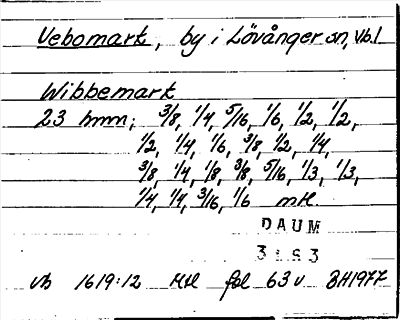 Vebomark, by i Lövånger sn, Vb.l
Wibbemark
23 hmn; 3/8, 1/4, 5/16, 1/6, 1/2, 1/2,
1/2, 1/4, 1/6, 3/8, 1/2, 1/4,
3/8, 1/4, 1/8, 3/8, 5/16, 1/3, 1/3,
1/4, 1/4, 3/16, 1/6 mtl
DAUM
3193
Vb 1619:12 Mtl fol 63 v BH1977